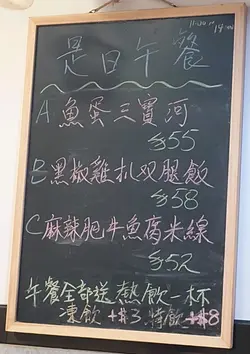 是日午餐
A 魚蛋三寶河
$55
B 黑椒雞扒双腿飯
$58
C 麻辣肥牛魚腐米線
$52
午餐全部送熱飲一杯
凍飲+$3 特飲+$8